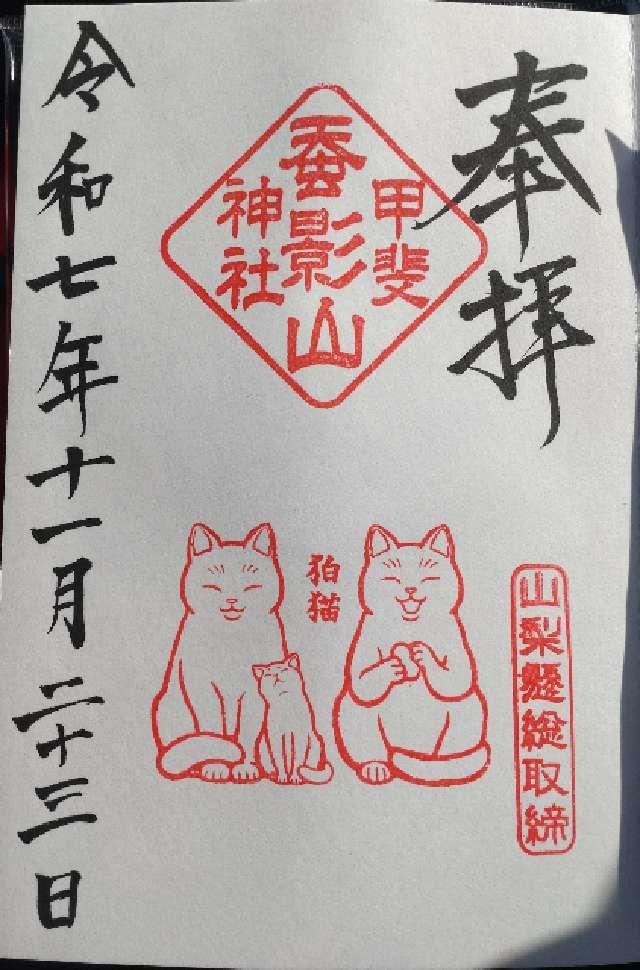 奉拝
甲斐
蚕影山
神社
狛猫
山梨懸総取締
令和七年十一月二十三日